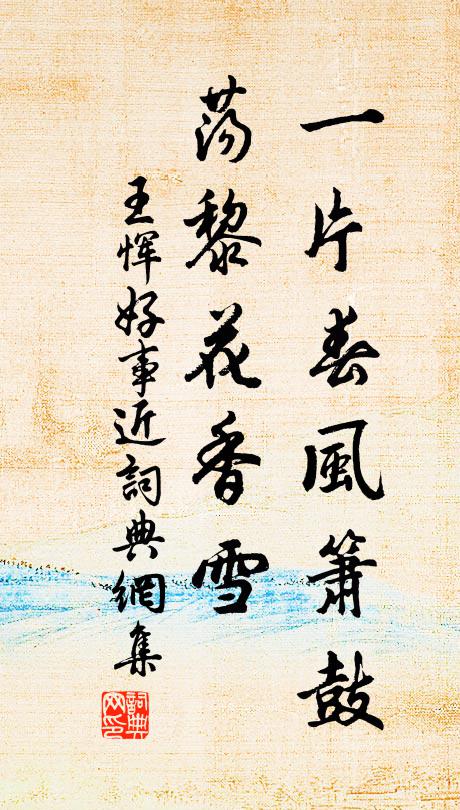 一片春風簫鼓
蕩黎花香雪
王惲好事近詞典網集
詞典網印